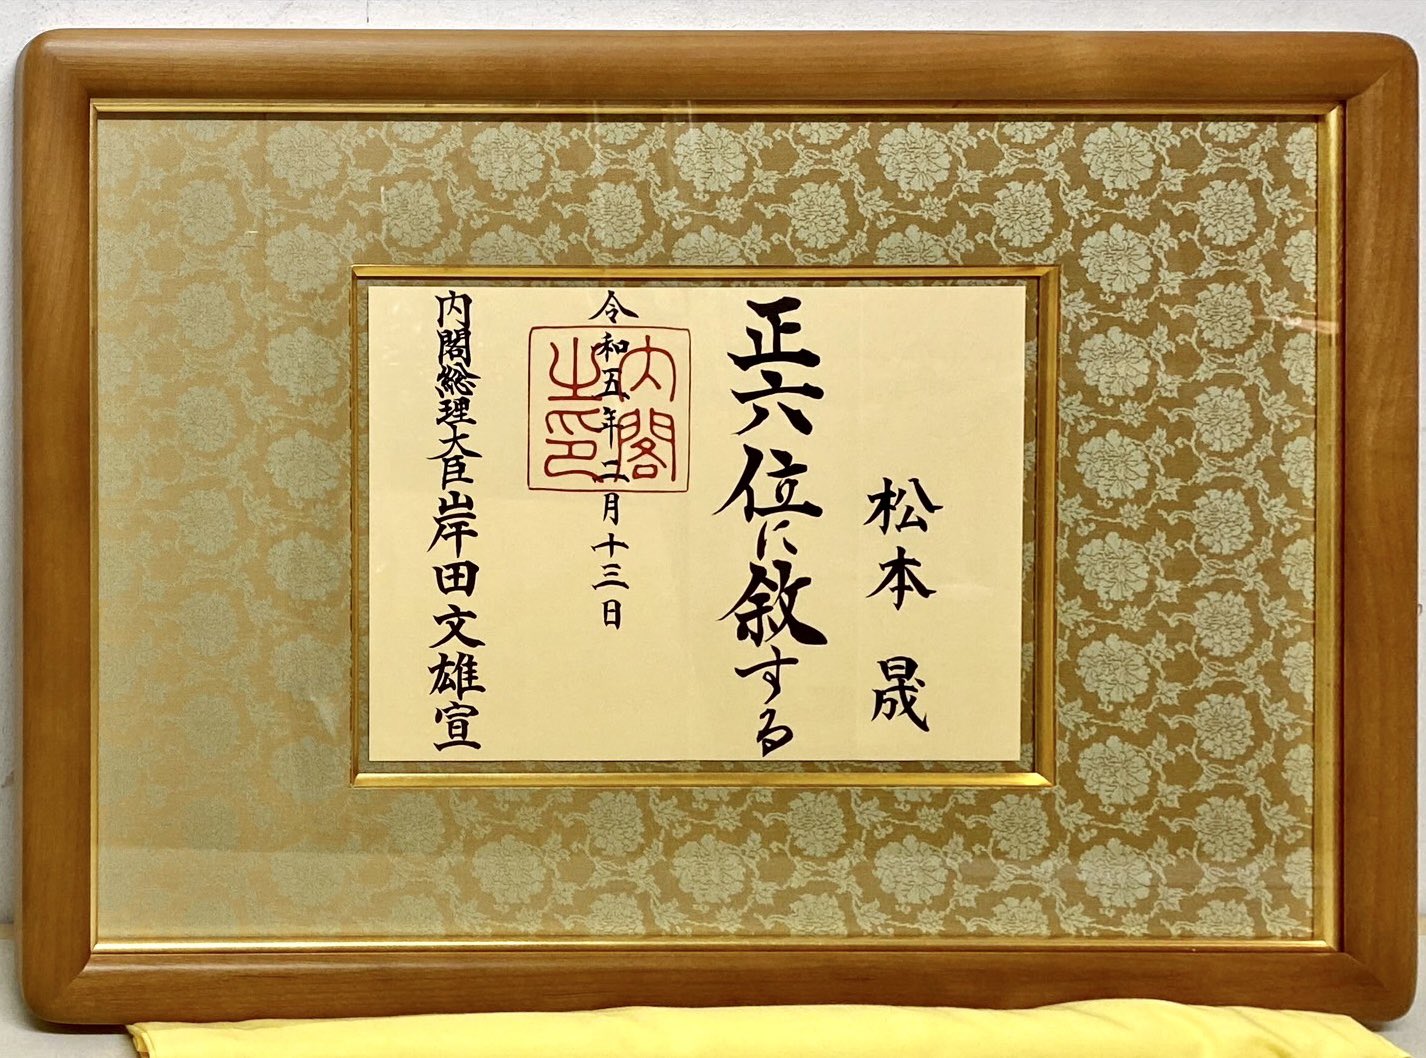 松本 晟
正六位に敘する
令和五年二月十三日
内閣之印
内閣総理大臣岸田文雄宣